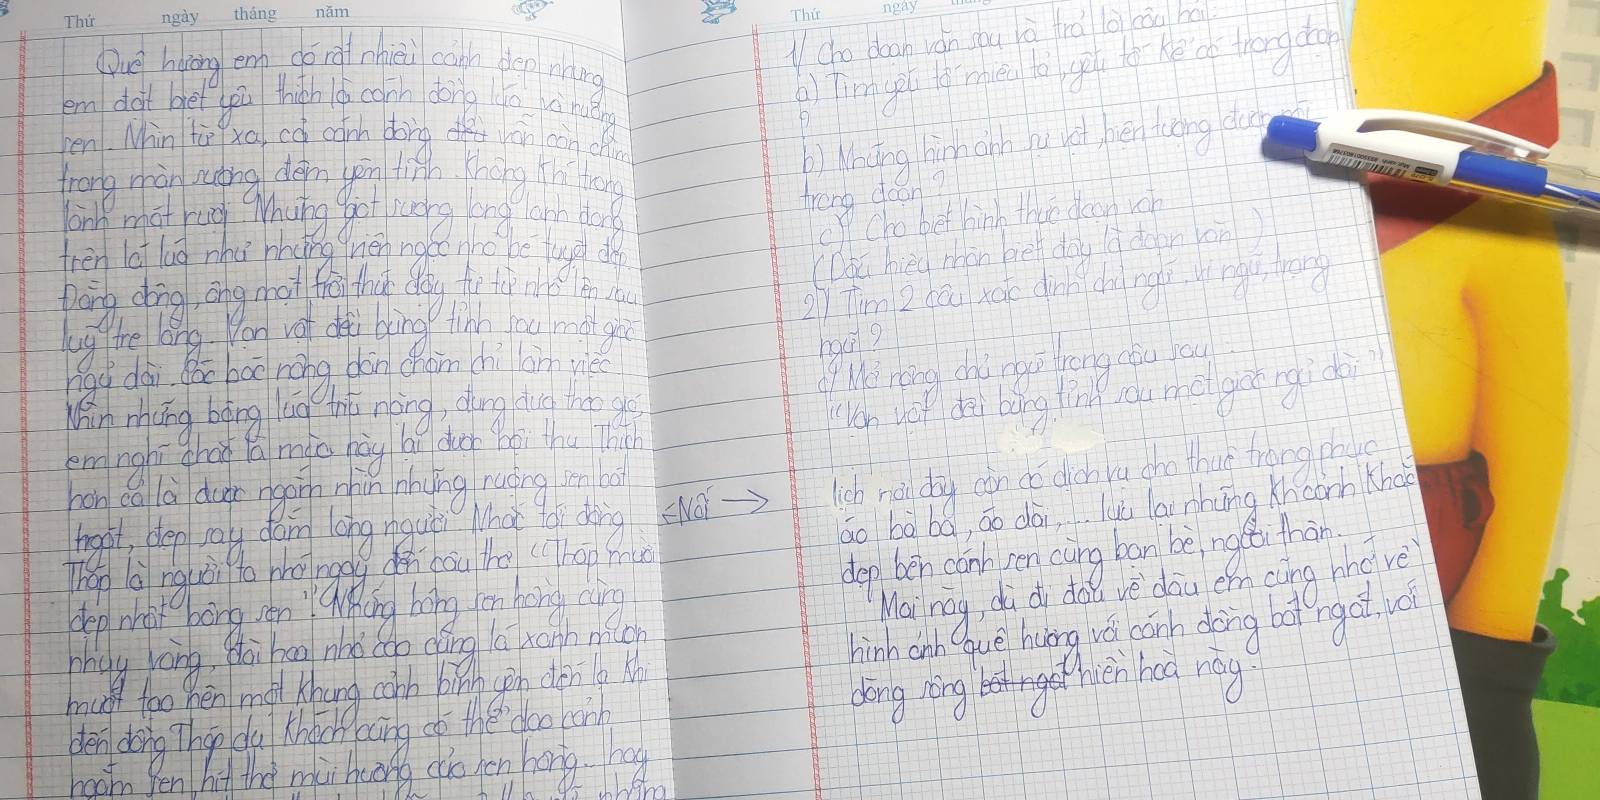 Thứ ngày tháng năm
Quê hương em có rất nhiều cảnh đẹp nhưng
em đặt biệt yêu thích là cánh đồng lúa và ruộng
sen. Nhìn từ xa, cả cánh đồng vẫn còn chìm
trong màn sương đêm yên tĩnh. Không khí trong
lành mát rượi. Những giọt sương long lanh đọng
trên lá lúa như những viên ngọc nhỏ bé tuyệt đẹp
Đằng đông, ông mặt trời thức dậy từ từ nhô lên sau
luỹ tre làng. Vạn vật đều bừng tỉnh sau một giấc
ngủ dài. Các bác nông dân chăm chỉ làm việc
Nhìn những bông lúa trĩu nặng, đung đưa theo gió
em nghĩ chắc là mùa này lại được bội thu. Thích
hơn cả là được ngắm nhìn những ruộng sen bát
ngát, đẹp say đắm lòng người. Nhắc tới đồng
Tháp là người ta nhớ ngay đến câu thơ "Tháp mười
đẹp nhất bông sen". Những bông sen hồng cùng
nhuỵ vàng, đài hoa nhô cao cùng lá xanh mướn
mượt tạo nên một khung cảnh bình yên đến lạ. Khi
đến đồng Tháp du khách cũng có thể dạo cảnh
ngắm sen, hít thở mùi hương của sen hồng. hay
Thứ ngày
1/ Cho đoạn văn sau và trả lời câu hỏi:
a) Tìm yếu tố miêu tả, yếu tố kể có trong đoạn
?
b) Những hình ảnh sự vật, hiện tượng được
trong đoạn?
c) Cho biết hình thức đoạn văn
(Dấu hiệu nhận biết đây là đoạn văn)
2) Tìm 2 câu xác định chủ ngữ, vị ngữ, trạng
ngữ?
d) Mở rộng chủ ngữ trong câu sau:
"Vạn vật đều bừng tỉnh sau một giấc ngủ dài"
<Nối → lịch nơi đây còn có dịch vụ cho thuê trang phục
áo bà ba, áo dài,... lưu lại những khoảnh khắc
đẹp bên cánh sen cùng bạn bè, người thân.
Mai này, dù đi đâu về đâu em cũng nhớ về
hình ảnh quê hương với cánh đồng bát ngát, với
dòng sông bát ngát hiền hoà này.